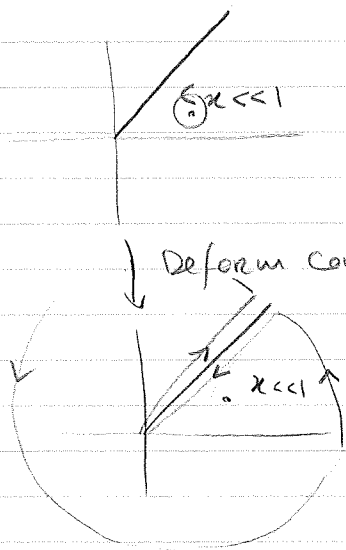 x<<1
Deform Con
x<<1